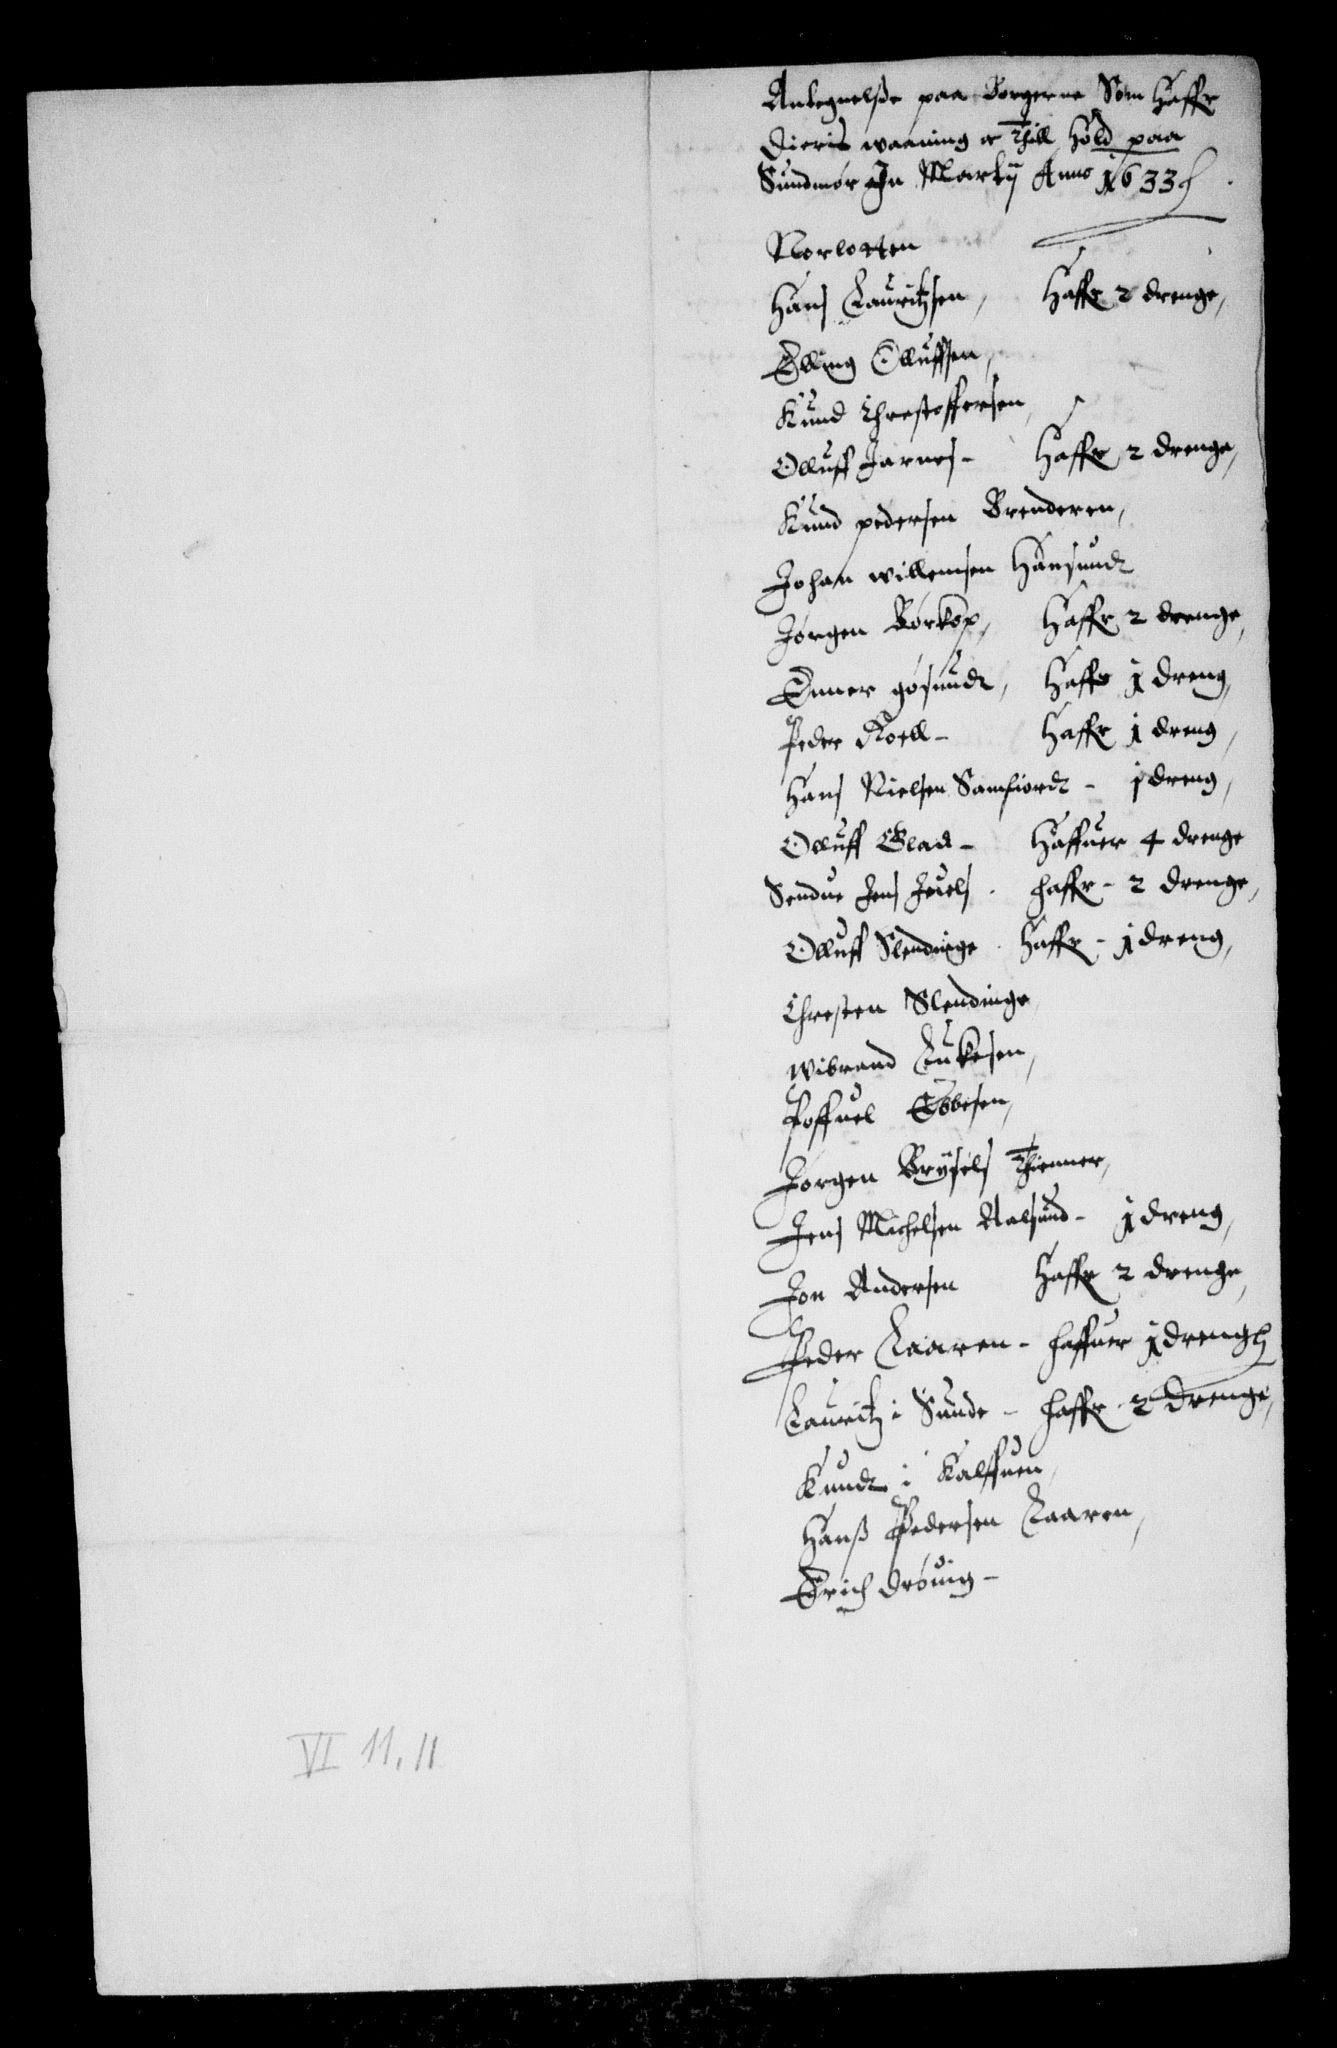 Antegnelsse paa Borgerne Som Haffr
Dieris waaning oc Thill Hold paa
Sundmør In Martij Anno 1633
Norlotten
Hans Lauritzsen, Haffr 2 drenge,
Elling Olluffsen,
Knud Chrestoffersen,
Olluff Jarnes - Haffr 2 drenge,
Knud pedersen Brenderen,
Johan willemsen Hansundt
Jørgen Børkop, Haffr 2 drenge,
Enner gøsundt, Haffr 1 dreng,
Peder Roell - Haffr 1 dreng,
Hans Nielsen Samfiordt - 1 dreng,
Olluff Glad - Haffuer 4 drenge
Sendue Jens Juels. haffr - 2 drenge,
Olluff Slendinge. Haffr - 1 dreng,
Chresten Slendinge
wibrand Lukesen,
Poffuel Ebbesen,
Jørgen Brysels Thienner,
Jens Michelsen Aalsund - 1 dreng,
Jon Andersen Haffr 2 drenge,
Peder Laaren - haffuer 1 dreng
Lauritz i Sunde - haffr 2 drenge,
Knudt i Kalffuen,
Hanss Pedersen Laaren,
Erich drøuig -
VI 11, 11